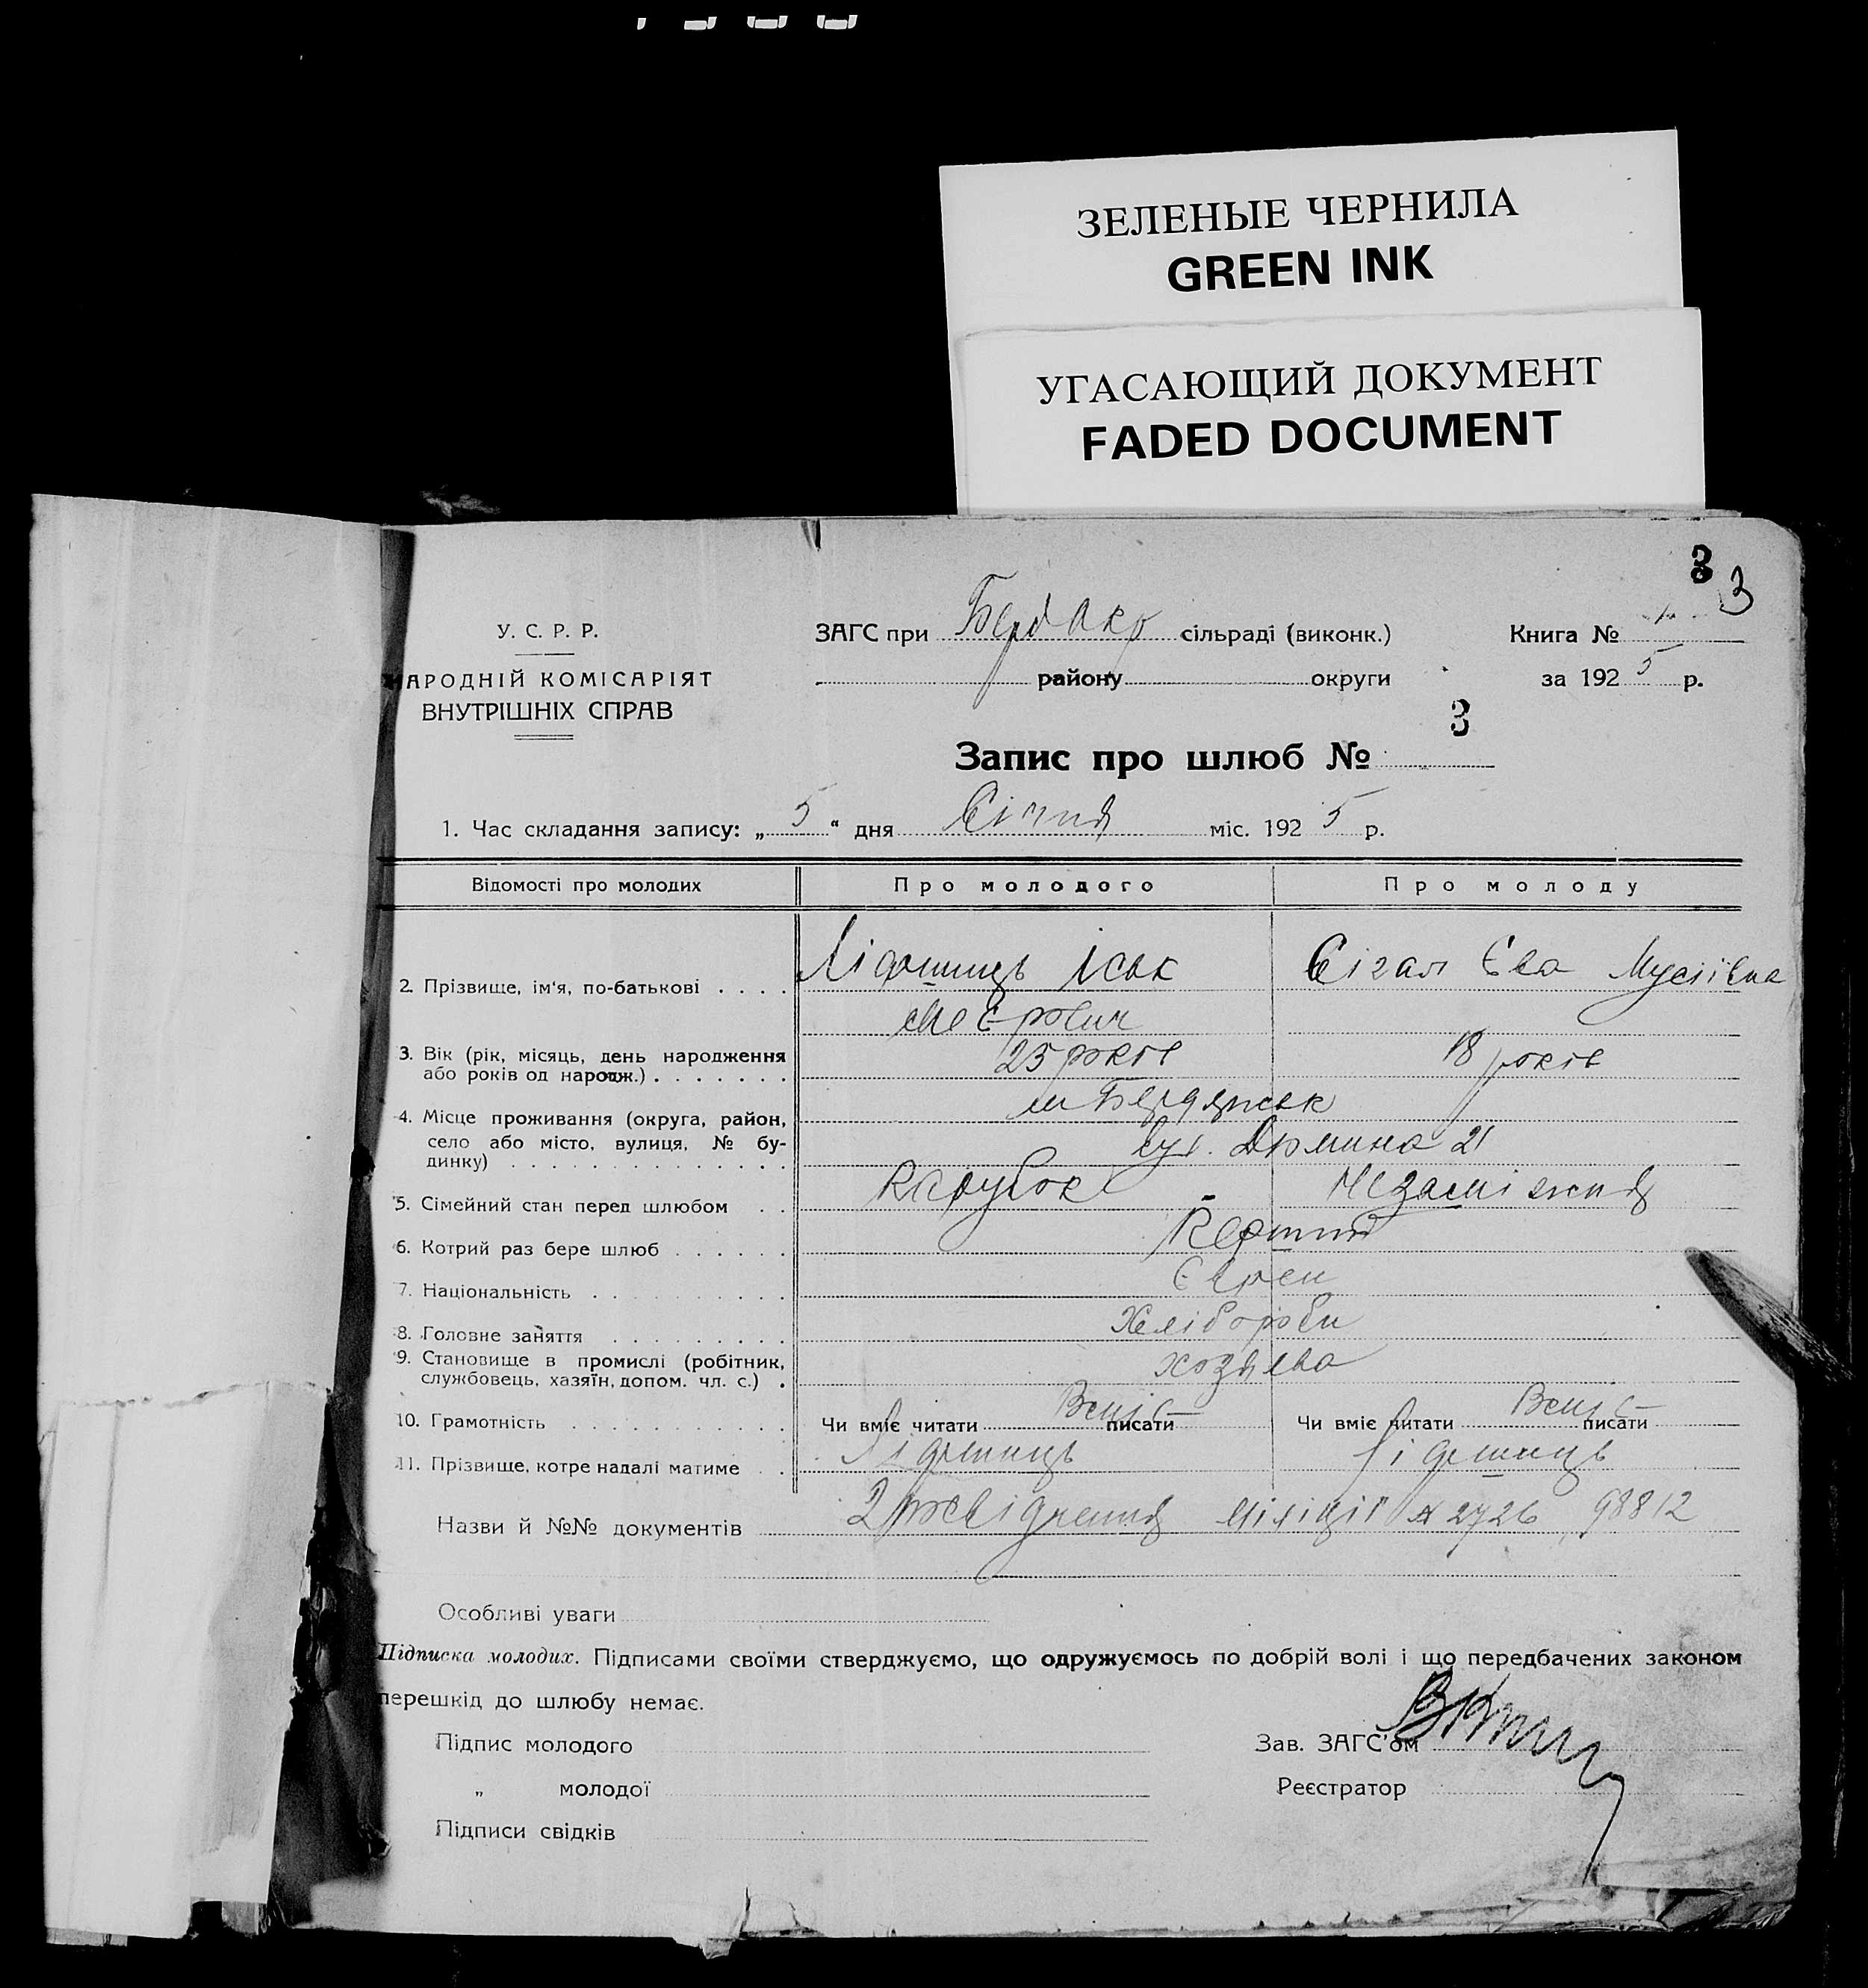 ЗЕЛЕНЫЕ ЧЕРНИЛА
GREEN INK
УГАСАЮЩИЙ ДОКУМЕНТ
FADED DOCUMENT
3
3
У. С. Р. Р.
НАРОДНІЙ КОМІСАРІЯТ
ВНУТРІШНІХ СПРАВ
ЗАГС при сільраді (виконк.)
району округи
Книга № 1
за 1925 р.
Запис про шлюб № 3
1. Час складання запису: „5“ дня Січня міс. 1925 р.
Відомості про молодих Про молодого Про молоду
2. Прізвище, ім'я, по-батькові Ісак Сігал Єва Мусіївна
Меєрович
3. Вік (рік, місяць, день народження або років од народж.) 25 років 18 років
4. Місце проживання (округа, район, село або місто, вулиця, № будинку) м Бердянськ
вул. Дюмина 21
5. Сімейний стан перед шлюбом Парубок Незаміжня
6. Котрий раз бере шлюб
7. Національність Євреи
8. Головне заняття Хлібороби
9. Становище в промислі (робітник, службовець, хазяїн, допом. чл. с.) хозяева
10. Грамотність Чи вміє читати Вміє писати Чи вміє читати Вміє писати
11. Прізвище, котре надалі матиме
Назви й №№ документів 2 посвідчення міліції № 2726, 98812
Особливі уваги
Підписка молодих. Підписами своїми стверджуємо, що одружуємось по добрій волі і що передбачених законом
перешкід до шлюбу немає.
Підпис молодого Зав. ЗАГС'ом
„ молодої Реєстратор
Підписи свідків